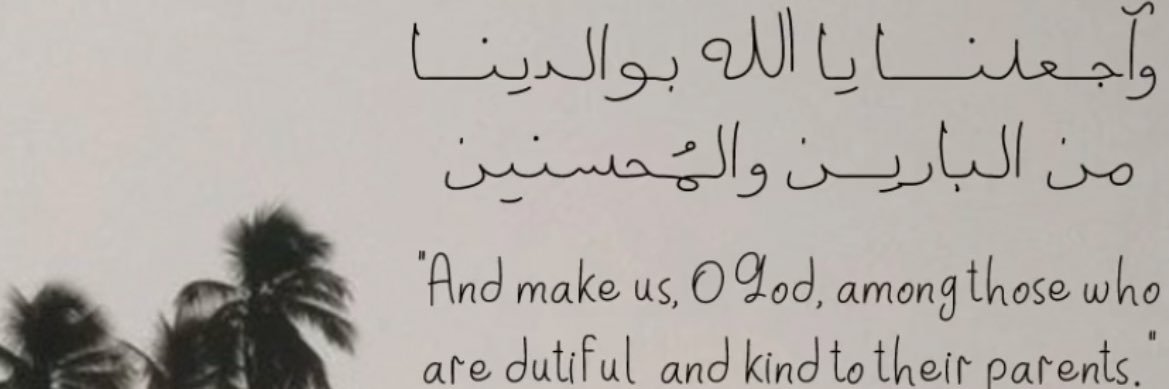 وآجعلنا يا الله بوالدينا
من البارين والمُحسنين
"And make us, O God, among those who
are dutiful and kind to their parents."